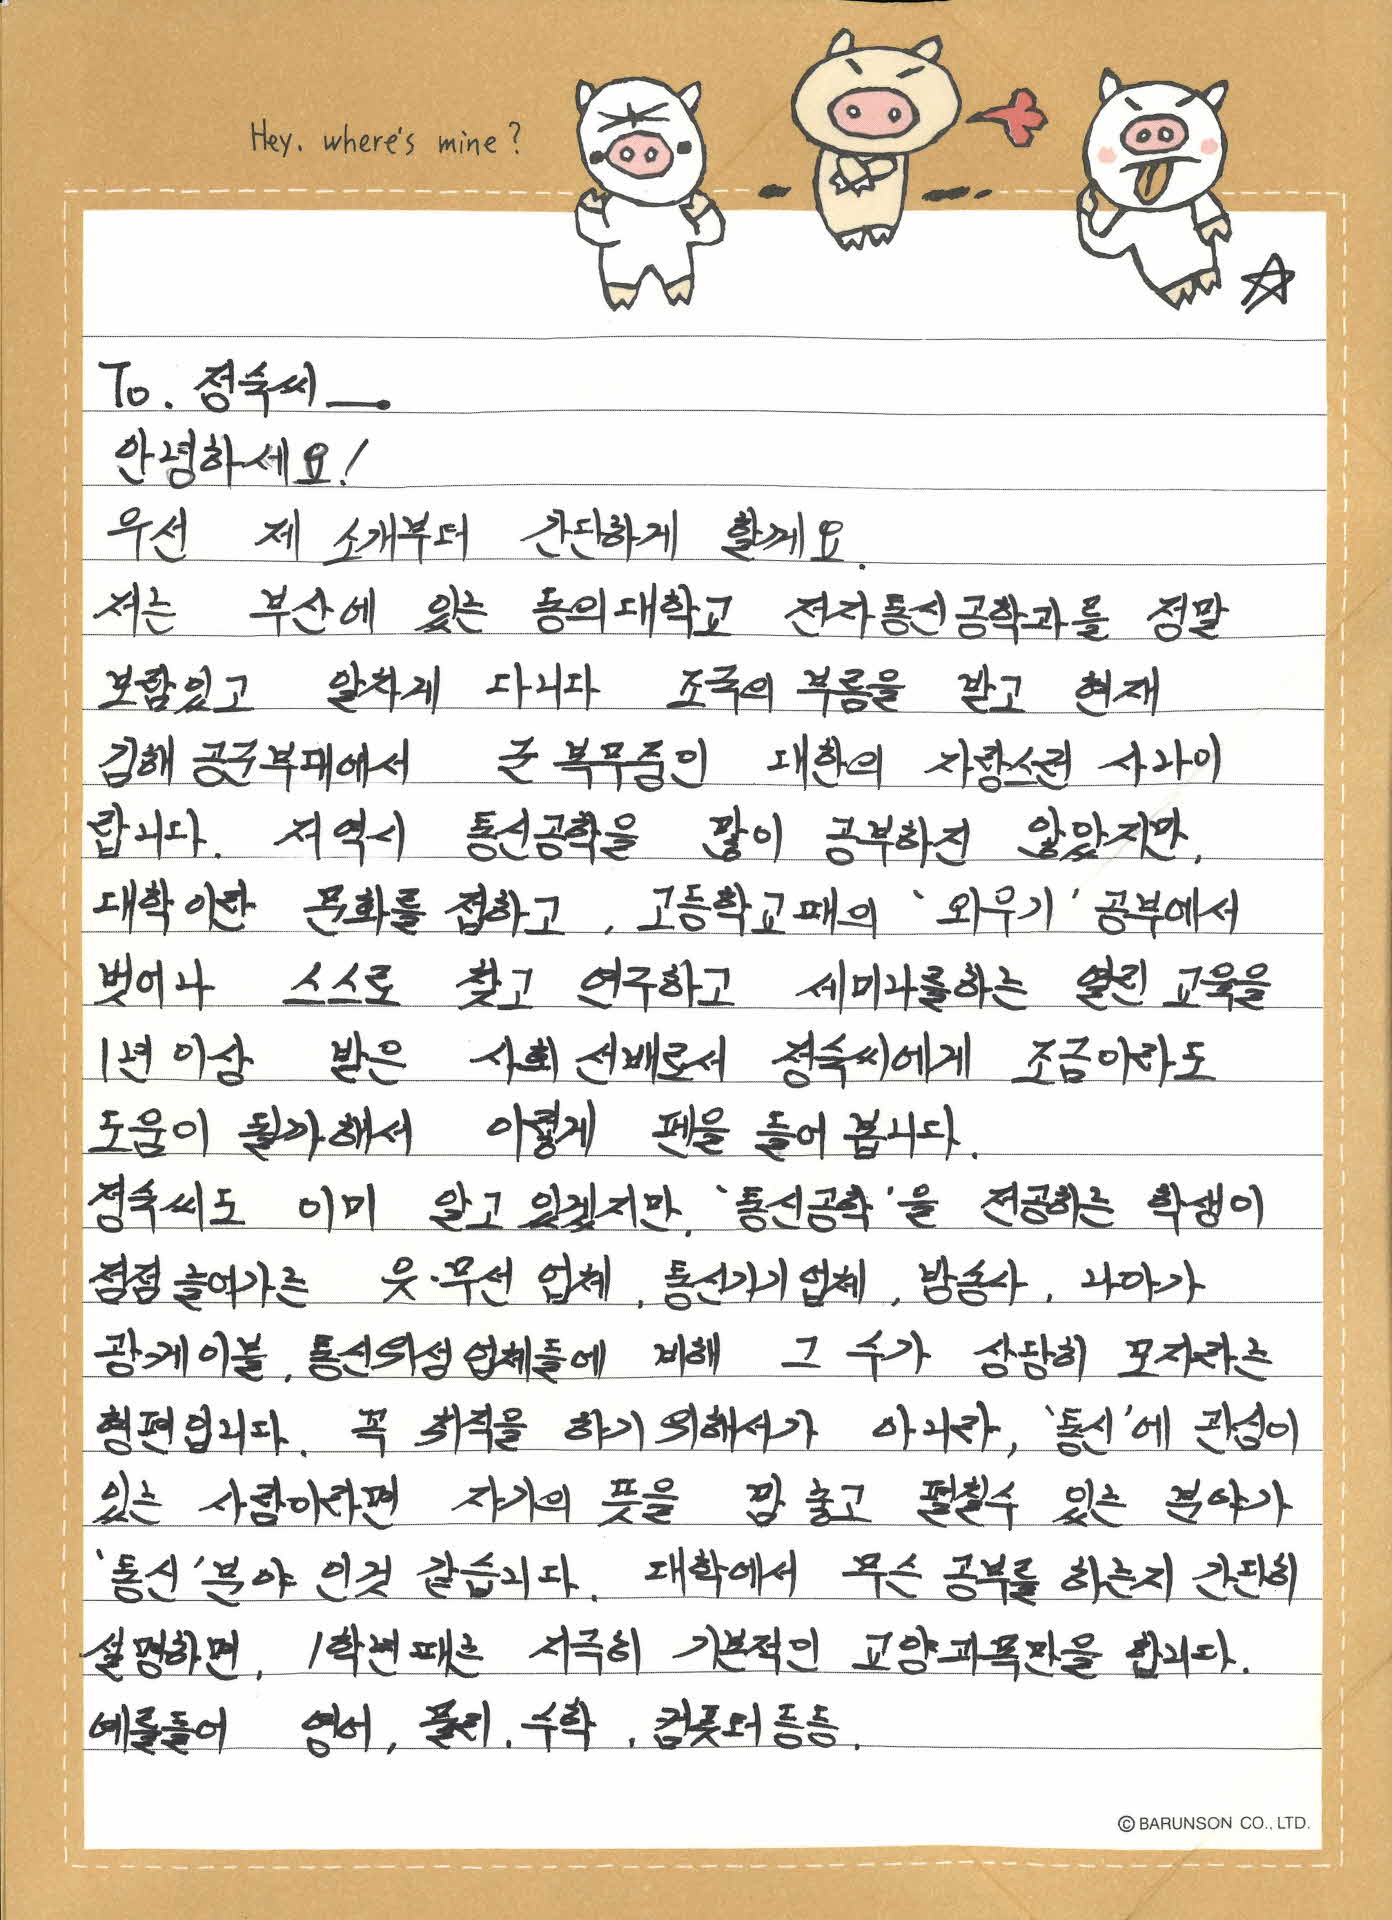 Hey. where's mine?
To. 정숙씨
안녕하세요!
우선 제 소개부터 간단하게 할께요.
저는 부산에 있는 동의대학교 전자통신공학과를 정말
보람있고 알차게 다니다 조국의 부름을 받고 현재
김해 공군부대에서 군 복무중인 대한의 자랑스런 사나이
랍니다. 저 역시 통신공학을 많이 공부하진 않았지만,
대학이란 문화를 접하고, 고등학교때의 '외우기' 공부에서
벗어나 스스로 찾고 연구하고 세미나를하는 열린 교육을
1년 이상 받은 사회 선배로서 정숙씨에게 조금이라도
도움이 될까해서 이렇게 펜을 들어 봅니다.
정숙씨도 이미 알고 있겠지만, '통신공학'을 전공하는 학생이
점점 늘어가는 유·무선 업체, 통신기기 업체, 방송사, 나아가
광케이블, 통신위성 업체들에 비해 그 수가 상당히 모자라는
형편입니다. 꼭 취직을 하기 위해서가 아니라, '통신'에 관심이
있는 사람이라면 자기의 뜻을 맘 놓고 펼칠수 있는 분야가
'통신' 분야 인것 같습니다. 대학에서 무슨 공부를 하는지 간단히
설명하면, 1학년때는 지극히 기본적인 교양과목만을 합니다.
예를들어 영어, 물리, 수학, 컴퓻터 등등.
© BARUNSON CO., LTD.